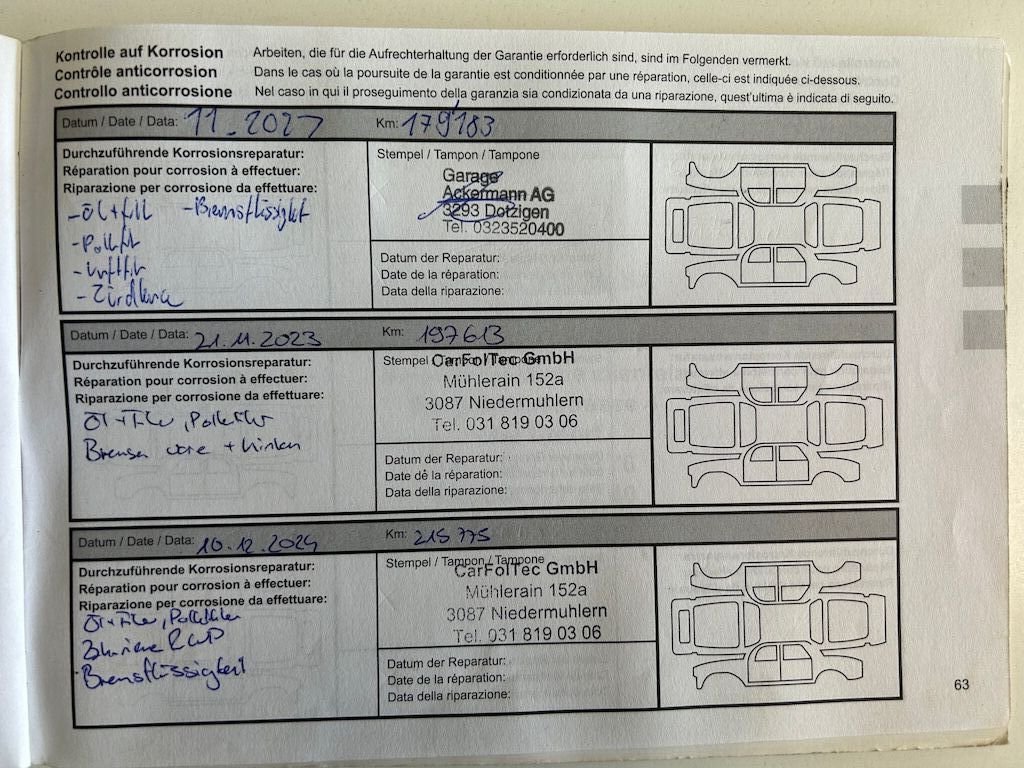 Kontrolle auf Korrosion Arbeiten, die für die Aufrechterhaltung der Garantie erforderlich sind, sind im Folgenden vermerkt.
Contrôle anticorrosion Dans le cas où la poursuite de la garantie est conditionnée par une réparation, celle-ci est indiquée ci-dessous.
Controllo anticorrosione Nel caso in qui il proseguimento della garanzia sia condizionata da una riparazione, quest'ultima è indicata di seguito.
Datum / Date / Data: 11. Km: 179'183
Durchzuführende Korrosionsreparatur:
Réparation pour corrosion à effectuer:
Riparazione per corrosione da effettuare:
- Öl + filt - Bremsflüssigkeit
- Pollfilt
- Luftfilt
Stempel / Tampon / Tampone
Garage
Ackermann AG
3293 Dotzigen
Tel. 0323520400
Datum der Reparatur:
Date de la réparation:
Data della riparazione:
Datum / Date / Data: 21.11.2023 Km: 197613
Durchzuführende Korrosionsreparatur:
Réparation pour corrosion à effectuer:
Riparazione per corrosione da effettuare:
Öl + Filter, Pollenfilter
Bremsen vorne + hinten
Stempel / Tampon / Tampone
CarFolTec GmbH
Mühlerain 152a
3087 Niedermuhlern
Tel. 031 819 03 06
Datum der Reparatur:
Date de la réparation:
Data della riparazione:
Datum / Date / Data: 10.12.2024 Km: 215 775
Durchzuführende Korrosionsreparatur:
Réparation pour corrosion à effectuer:
Riparazione per corrosione da effettuare:
Öl + Filter, Pollenfilter
Bremsflüssigkeit
Stempel / Tampon / Tampone
CarFolTec GmbH
Mühlerain 152a
3087 Niedermuhlern
Tel. 031 819 03 06
Datum der Reparatur:
Date de la réparation:
Data della riparazione:
63